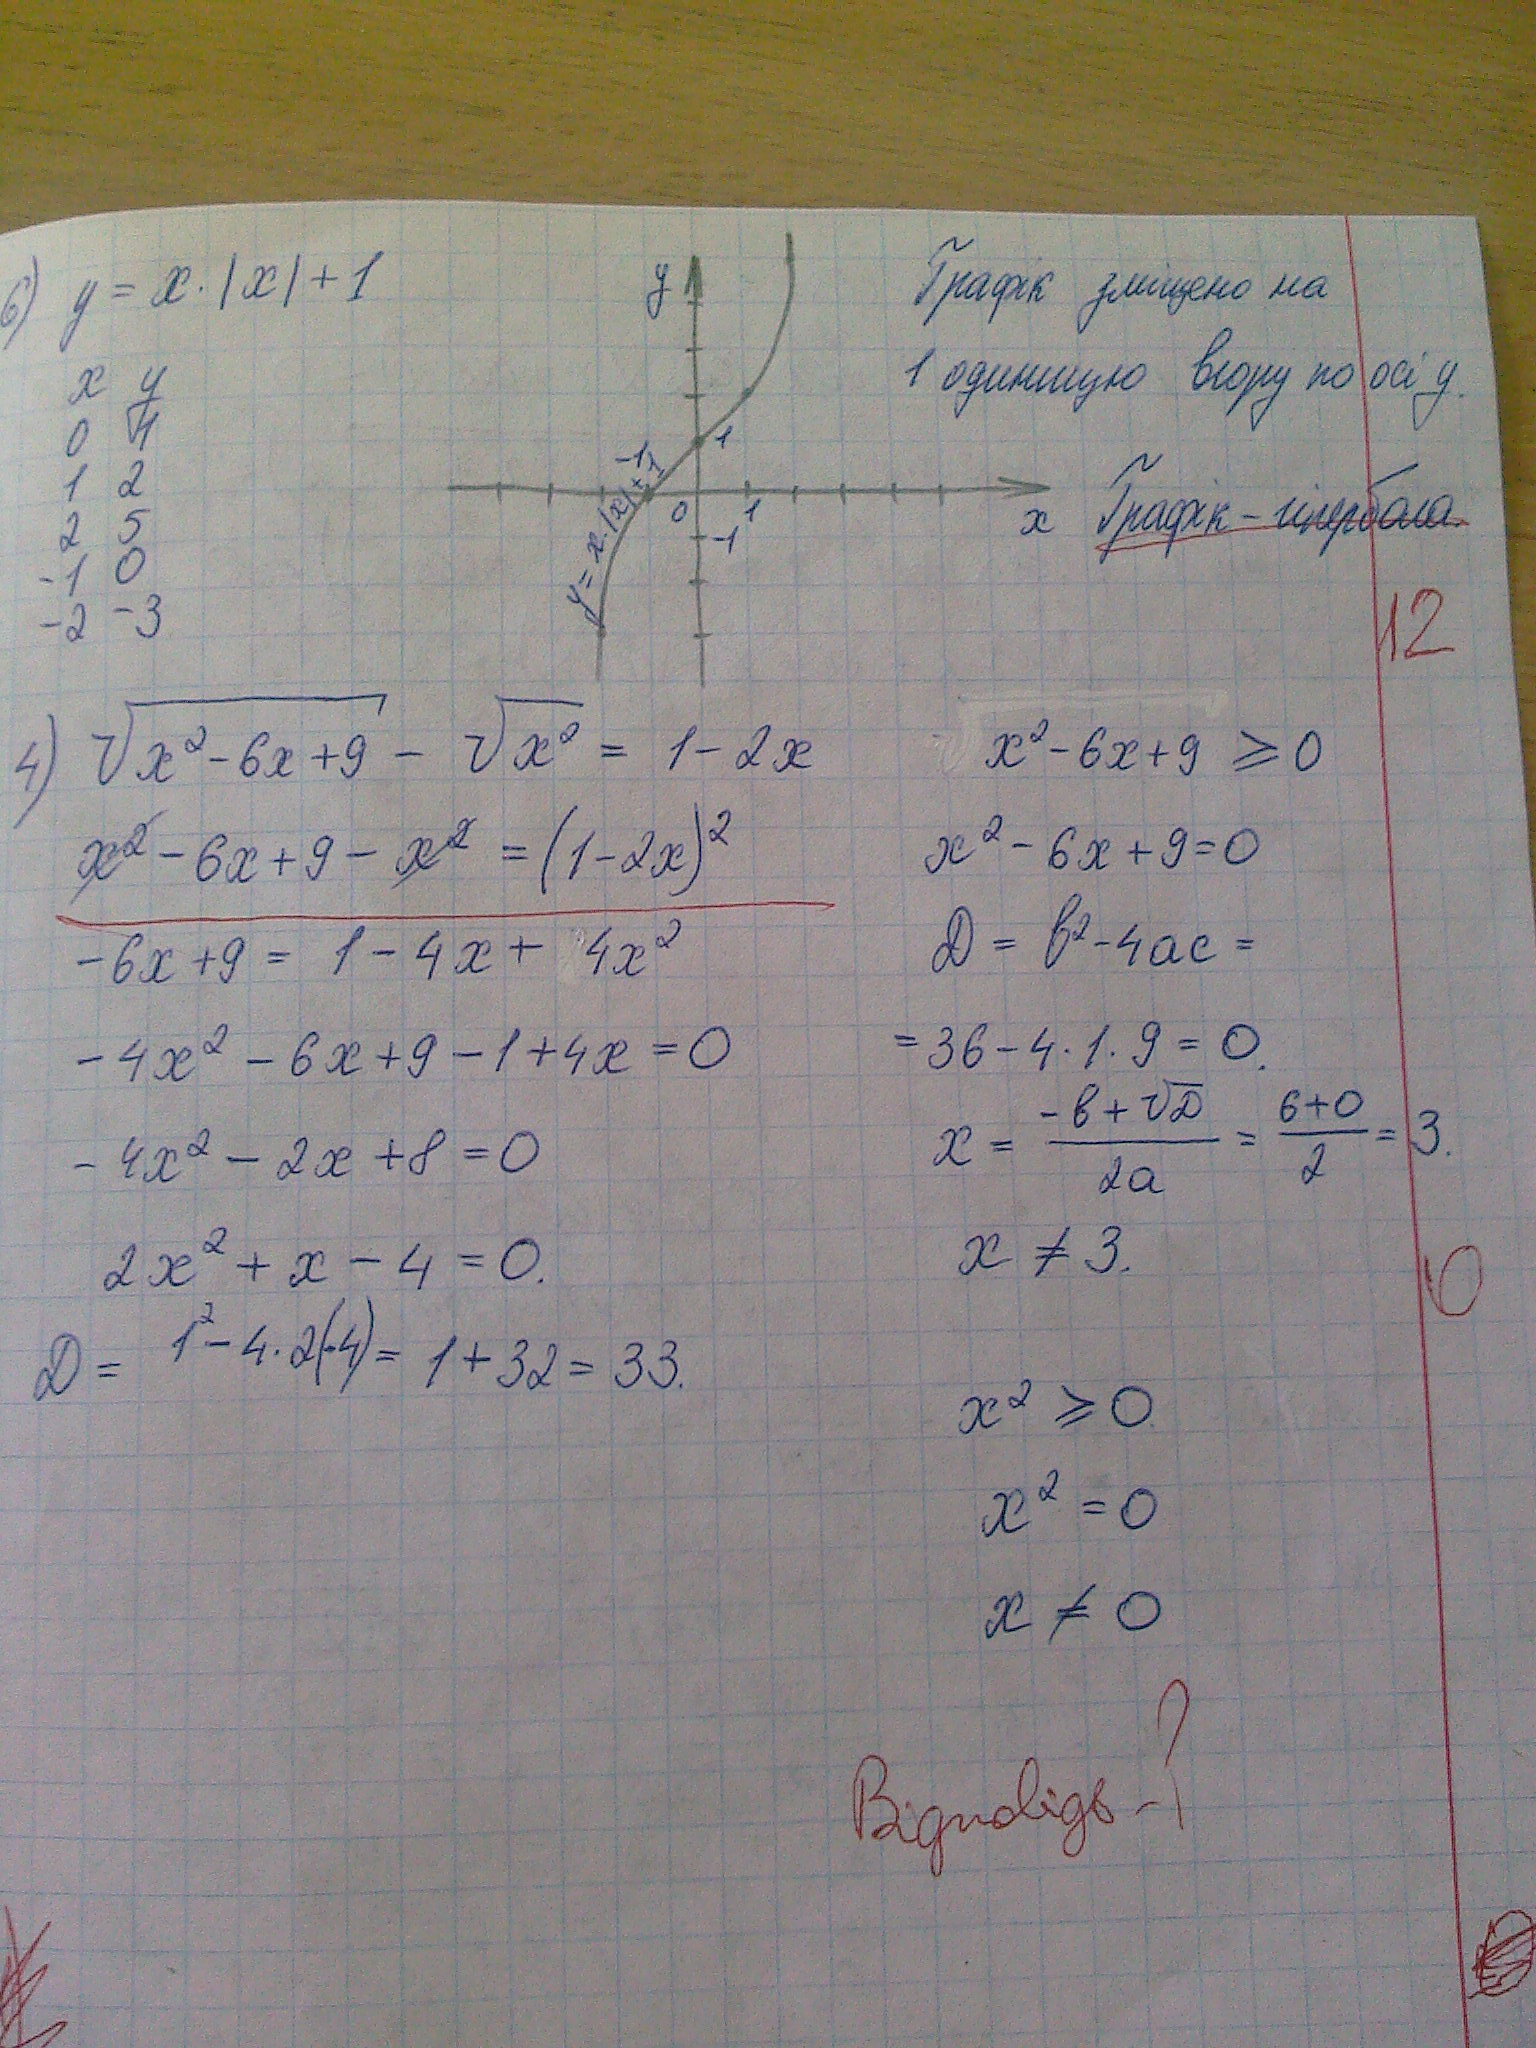 6) y = x·|x|+1
x y
0 1
1 2
2 5
-1 0
-2 -3
y
1
-1
0
1
-1
x
y = x·|x|+1
Графік зміщено на
1 одиницю вгору по осі y.
Графік – гіпербола.
12
4) √(x²-6x+9) - √(x²) = 1-2x
x²-6x+9-x² = (1-2x)²
-6x+9 = 1-4x+ 4x²
-4x²-6x+9-1+4x=0
-4x²-2x+8=0
2x²+x-4=0.
D = 1²-4·2(-4)= 1+32=33.
x²-6x+9 ⩾ 0
x²-6x+9=0
D = b²-4ac =
=36-4·1·9=0.
x = (-b+√D)/2a = (6+0)/2 = 3.
x ≠ 3.
0
x² ⩾ 0
x² = 0
x ≠ 0
Відповідь -?